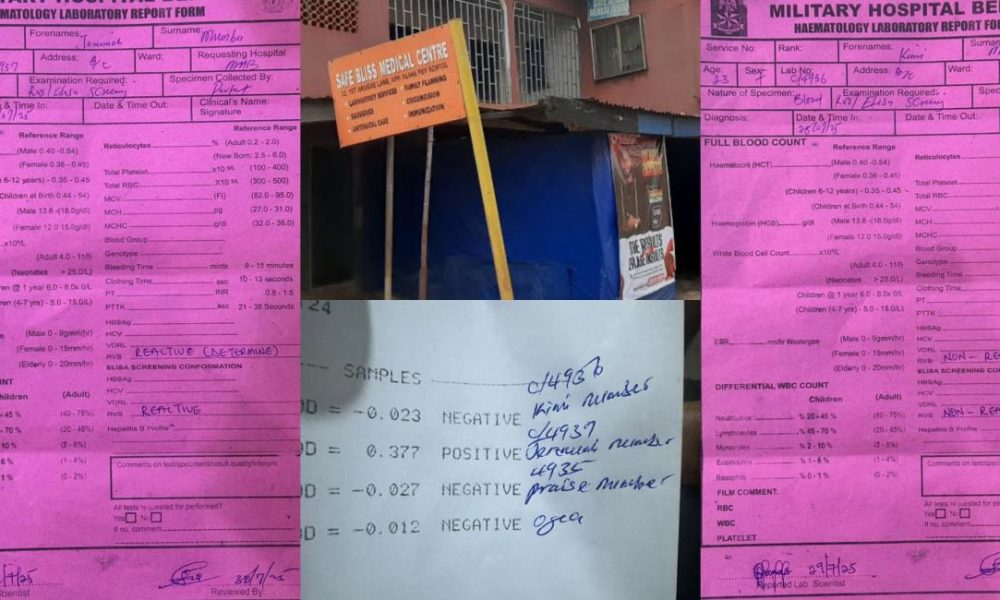 TARY HOSPITAL BE
HAEMATOLOGY LABORATORY REPORT FORM
Forenames:
Surname
Address: Ward: Requesting Hospital
4937
Examination Required: Specimen Collected By:
& Time In: Date & Time Out: Clinical's Name:
Signature
Reference Range
Reference Range
(Male 0.40 -0.54) Reticulocytes % (Adult 0.2 - 2.0)
(Female 0.36 - 0.45) (New Born: 2.5 - 6.0)
6-12 years) - 0.35 - 0.45 Total Platelet x10 (100 - 400)
Children at Birth 0.44 - 54) Total RBC X10 (300 - 500)
MCV (Fl) (82.0 - 95.0)
(Male 13.6 -(18.0g/dl) MCH pg (27.0 - 31.0)
(Female 12.0 15.0g/dl) MCHC g/dl (32.0 - 36.0)
x10⁹/L Blood Group
(Adult 4.0 - 11/l) Genotype
(Neonates > 25.0/L) Bleeding Time mints 9 - 15 minutes
ren @ 1 year 6.0 - 8.0x 0/L Clothing Time sec 10 - 13 seconds
PT INR 0.8 - 1.6
ren (4-7 yrs) - 5.0 - 15.0/L) PTTK sec 21 - 38 Seconds
HBSAg
(Male 0 - 9gmm/hr) HCV
(Female 0 - 15mm/hr) VDRL
RVS REACTIVE (DETERMINE)
(Elderly 0 - 20mm/hr) ELISA SCREENING CONFORMATION
HBSAg
NT HCV
Children (Adult) VDRL
45 % (40 - 75%) RVS REACTIVE
- 70 % (20 - 45%) Hepatitis B Profile
10 % (2 - 8%)
6 % (1 - 4%)
1 % (0 - 2%)
All tests requested for performed?
Yes No
If no, comment
30/7/25
Scientist Reviewed By
SAFE BLISS MEDICAL CENTRE
• LABORATORY SERVICES • FAMILY PLANNING
• CIRCUMCISION
• ANTENATAL CARE • IMMUNIZATION
THE RESULTS
24
SAMPLES c/4936
OD = -0.023 NEGATIVE Kimi Mumber
c/4937
OD = 0.377 POSITIVE Mumber
4935
OD = -0.027 NEGATIVE praise Mumber
OD = -0.012 NEGATIVE
MILITARY HOSPITAL BE
HAEMATOLOGY LABORATORY REPORT FO
Service No: Rank: Forenames: Kimi
Age: 23 Sex: F Lab No: c/4936 Address: Ward:
Nature of Specimen: Blood Examination Required:
Diagnosis: Date & Time In: Date & Time Out:
FULL BLOOD COUNT
Reference Range
Haematocrit (HCT) (Male 0.40 -0.54) Reticulocytes
(Female 0.36 - 0.45)
(Children 6-12 years) - 0.35 - 0.45 Total Platelet
(Children at Birth 0.44 - 54) Total RBC
MCV
Haemoglobin (HGB) g/dl (Male 13.6 -(18.0g/dl) MCH
(Female 12.0 15.0g/dl) MCHC
White Blood Cell Count x10⁹/L Blood Group
(Adult 4.0 - 11/l) Genotype
(Neonates > 25.0/L) Bleeding Time
Children @ 1 year 6.0 - 8.0x 0/L Clothing Time
PT
(Children (4-7 yrs) - 5.0 - 15.0/L) PTTK
HBSAg
ESR mm/hr Westergen (Male 0 - 9gmm/hr) HCV
(Female 0 - 15mm/hr) VDRL
RVS NON - RE
(Elderly 0 - 20mm/hr) ELISA SCREENING CO
HBSAg
DIFFERENTIAL WBC COUNT HCV
Children (Adult) VDRL
Neutrophils % 20 - 45 % (40 - 75%) RVS NON - REA
Lymphocytes % 45 - 70 % (20 - 45%) Hepatitis B Profile
Monocytes % 2 - 10 % (2 - 8%)
Eosinophils % 1 - 6 % (1 - 4%)
Basophils % 0 - 1 % (0 - 2%)
FILM COMMENT:
RBC All tests requested
Yes No
WBC If no, comment
PLATELET
29/7/25
Reported Lab. Scientist